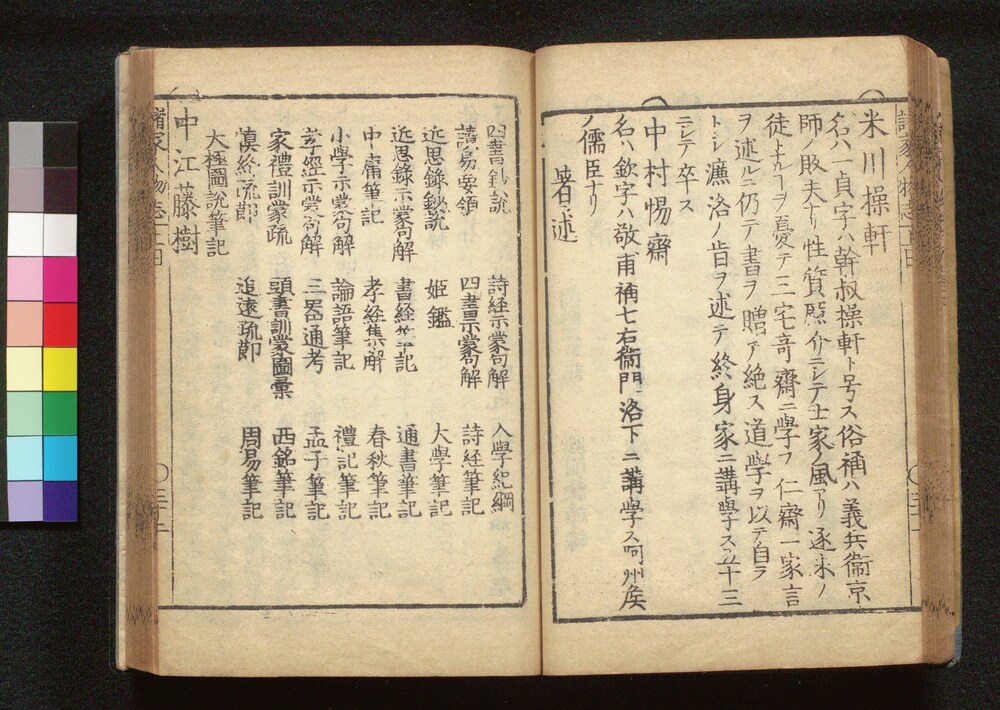 米川操軒
名ハ一貞字ハ幹叔操軒ト号ス俗稱ハ義兵衞京
師ノ敗夫ナリ性質介ニシテ士家ノ風アリ逐末ノ
徒トナルヿヲ憂テ三宅竒齋ニ學フ仁齋一家言
ヲ述ルニ仍テ書ヲ贈テ絶ス道學ヲ以テ自ラ
トシ濂洛ノ旨ヲ述テ終身家ニ講學ス五十三
ニシテ卒ス
中村惕齋
名ハ欽字ハ敬甫稱七右衞門洛下ニ講學ス阿州侯
ノ儒臣ナリ
著述
四書鈔説 詩経示蒙句解 入學紀綱
讀易要領 四書示蒙句解 詩経筆記
近思録鈔説 姫鑑 大學筆記
近思録示蒙句解 書経筆記 通書筆記
中庸筆記 孝経集解 春秋筆記
小學示蒙句解 論語筆記 禮記筆記
孝經示蒙句解 三器通考 孟子筆記
家禮訓蒙疏 頭書訓蒙圖彙 西銘筆記
愼終疏節 追遠疏節 周易筆記
大極圖説筆記
中江藤樹